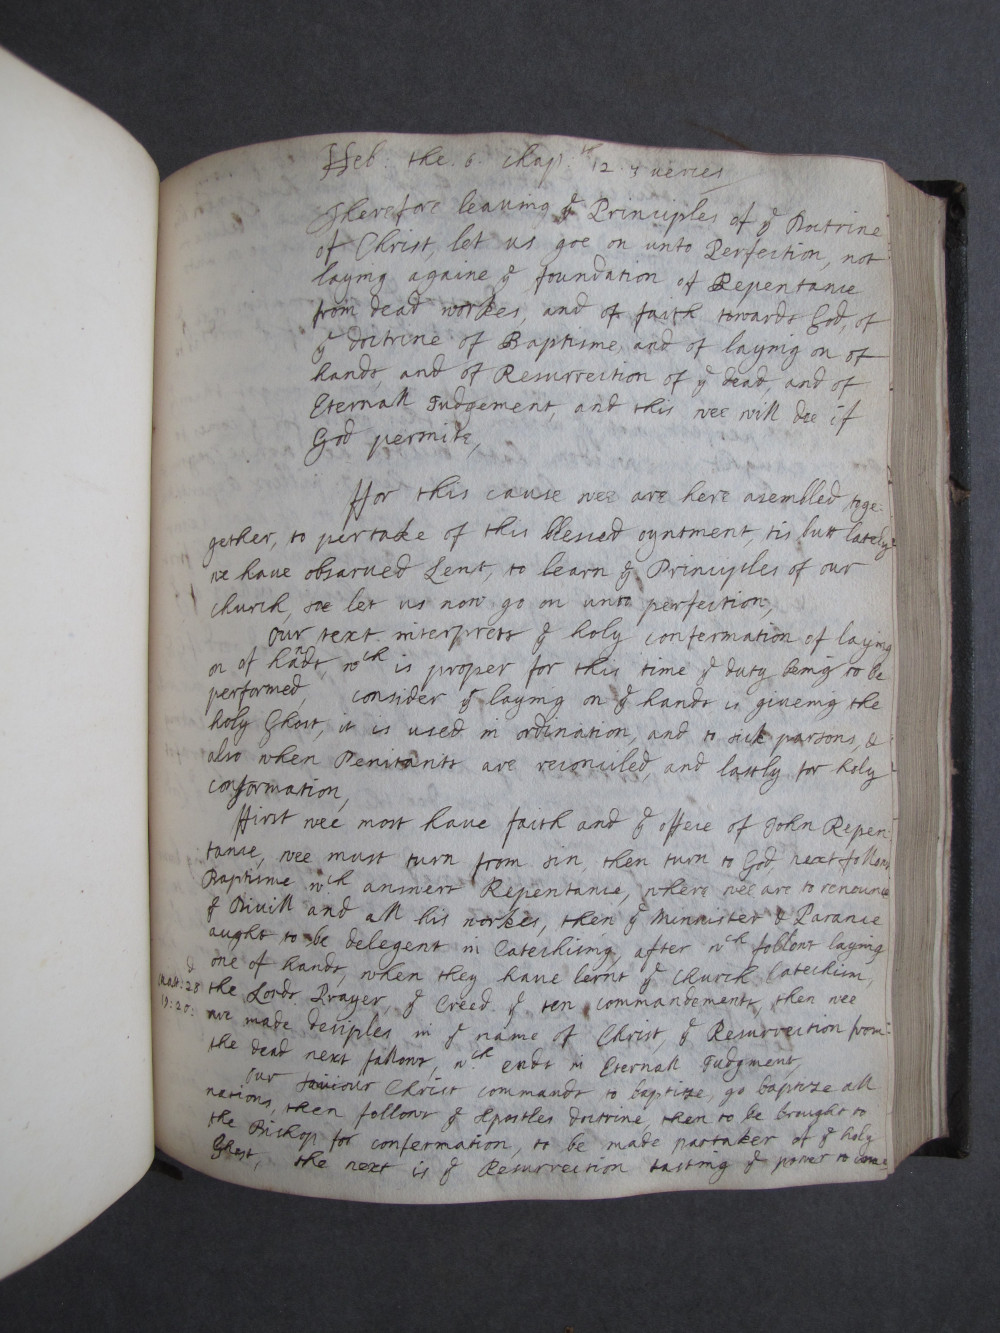 Heb: the. 6. chap: th 12. 3 verses
Therefore leauing ye Principles of ye Doctrine
of Christ, let us goe on unto Perfection, not
laying againe ye foundation of Repentance
from dead workes, and of faith towards God, of
ye doctrine of Baptisme, and of laying on of
hands, and of Resurrection of ye dead, and of
Eternall Judgement, and this wee will doe if
God permite,
Ffor this cause wee are here asembled toge-
gether, to pertake of this blessed oyntment, tis butt lately
we haue obsarued Lent, to learn ye Principles of our
church, soe let us now go on unto perfection,
Our text interprets ye holy confermation of laying
on of hands, wch is proper for this time ye duty being to be
performed, consider yt laying on ye hands is giueing the
holy Ghost, it is used in ordination, and to sick parsons, &
also when Penitants are reconciled, and lastly for holy
conformation,
Ffirst wee most haue faith and ye office of John Repen-
tance, wee must turn from sin, then turn to God, next follows
Baptisme wch answers Repentance, where wee are to renounce
ye Diuill and all his workes, then ye Minnister & Parance
aught to be delegent in Catechising, after wch follows laying
one of hands, when they haue lernt ye Church Catechism,
the Lords Prayer, ye Creed ye ten commandements, then wee
are made desiples in ye name of Christ, ye Resurrection from
the dead next fallows, wch ends in Eternall Judgment,
&
Matt: 28
19: 20:
Our Sauiour Christ commands to baptize, go baptize all
nations, then follows ye Apostles doctrine, then to be brought to
the Bishop for confermation, to be made partaker of ye holy
Ghost, the next is ye Resurrection tasting ye power to come